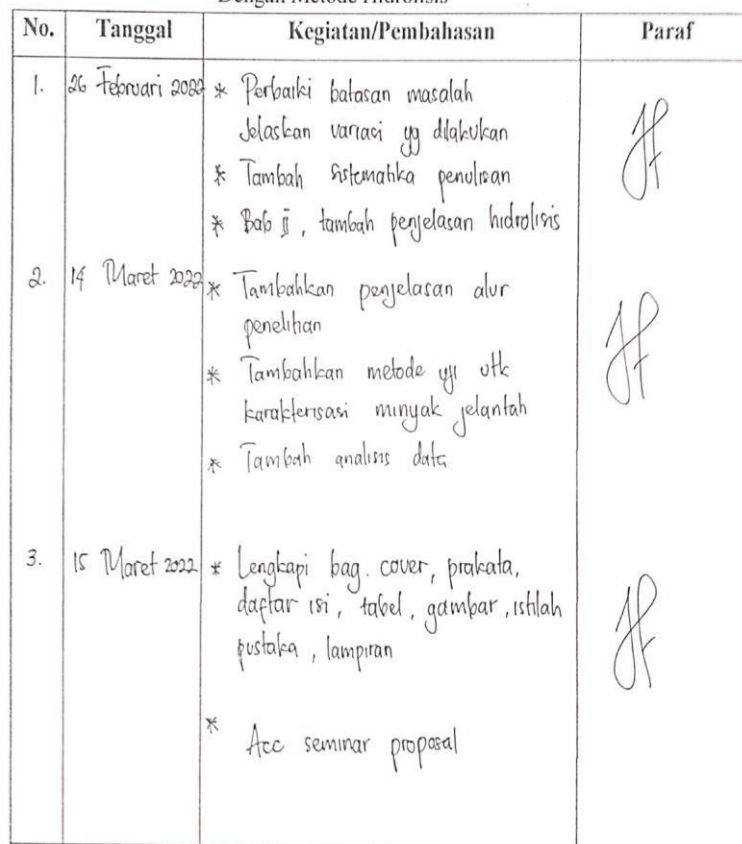 Dengan Metode Hidrolisis
No. Tanggal Kegiatan/Pembahasan Paraf
1. 26 Februari 2022 * Perbaiki batasan masalah
Jelaskan variasi yg dilakukan
* Tambah sistematika penulisan
* Bab II, tambah penjelasan hidrolisis
2. 14 Maret 2022 * Tambahkan penjelasan alur
penelitian
* Tambahkan metode uji utk
karakterisasi minyak jelantah
* Tambah analisis data
3. 15 Maret 2022 * Lengkapi bag. cover, prakata,
daftar isi, tabel, gambar, istilah
pustaka, lampiran
* Acc seminar proposal